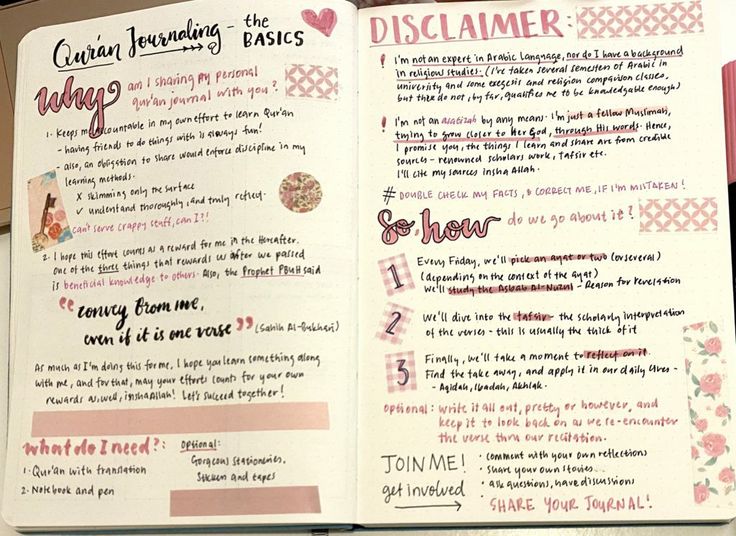 Qur'an Journaling - the BASICS
why am I sharing my personal
qur'an journal with you?
1. Keeps me accountable in my own effort to learn Qur'an
- having friends to do things with is always fun!
- also, an obligation to share would enforce discipline in my
learning methods.
x skimming only the surface
✓ understand thoroughly, and truly reflect.
can't serve crappy stuff, can I?!
2. I hope this effort counts as a reward for me in the Hereafter.
One of the three things that rewards us after we passed
is beneficial knowledge to others. Also, the Prophet PBUH said
"convey from me,
even if it is one verse" (Sahih Al-Bukhari)
As much as I'm doing this for me, I hope you learn something along
with me, and for that, may your efforts counts for your own
rewards as well, inshaAllah! Let's succeed together!
what do I need?:
1. Qur'an with translation
2. Notebook and pen
Optional:
Gorgeous stationeries.
Stickers and tapes
DISCLAIMER:
! I'm not an expert in Arabic Language, nor do I have a background
in religious studies. (I've taken several semesters of Arabic in
university and some exegesis and religion comparison classes,
but they do not, by far, qualifies me to be knowledgable enough)
! I'm not an asatizah by any means. I'm just a fellow Muslimah,
trying to grow closer to Her God, through His words. Hence,
I promise you, the things I learn and share are from credible
sources - renowned scholars work, Tafsir etc.
I'll cite my sources insha Allah.
# DOUBLE CHECK MY FACTS, & CORRECT ME, IF I'M MISTAKEN!
So, how do we go about it?
1 Every Friday, we'll pick an ayat or two (or several)
(depending on the context of the ayat)
We'll study the Asbab Al-Nuzul - Reason for Revelation
2 We'll dive into the tafsir - the scholarly interpretation
of the verses - this is usually the thick of it
3 Finally, we'll take a moment to reflect on it.
Find the take away, and apply it in our daily lives -
- Aqidah, Ibadah, Akhlak.
Optional: write it all out, pretty or however, and
keep it to look back on as we re-encounter
the verse thru our recitation.
JOIN ME!
get involved
· comment with your own reflections
· share your own stories...
· ask questions, have discussions
SHARE YOUR JOURNAL!